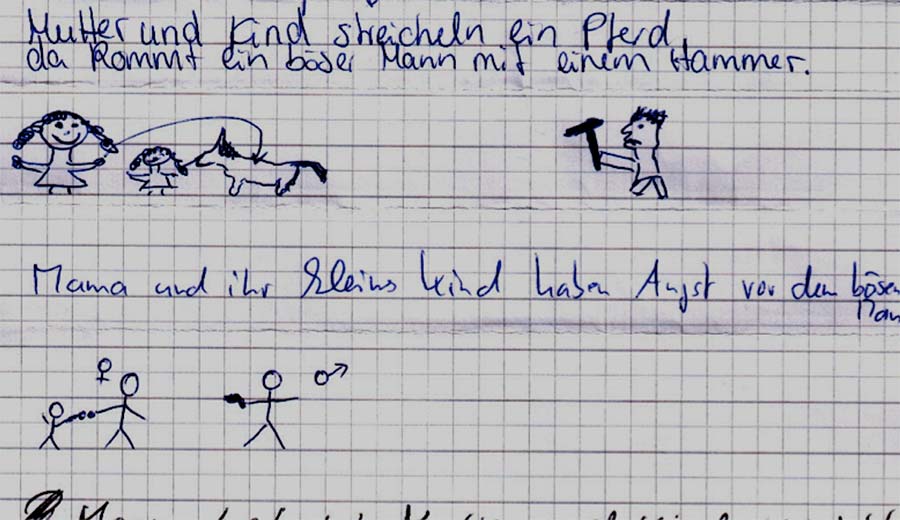 Mutter und Kind streicheln ein Pferd,
da kommt ein böser Mann mit einem Hammer.
Mama und ihr kleines Kind haben Angst vor dem bösen
Man